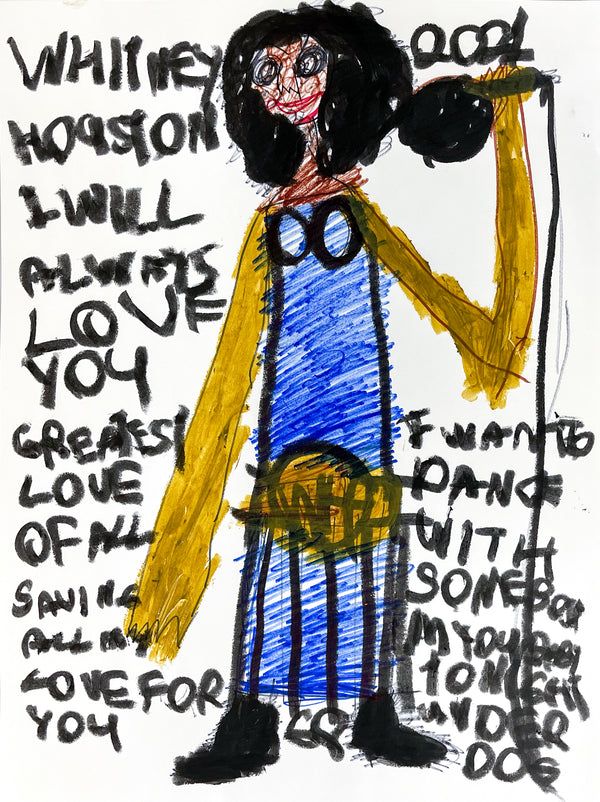 WHITNEY
HOUSTON
I WILL
ALWAYS
LOVE
YOU
GREATEST
LOVE
OF ALL
SAVING
ALL M
LOVE FOR
YOU
2021
I WANTO
DANCE
WITH
SOMEBODY
M YOU BABY
TONIGHT
UNDER
DOG
WH